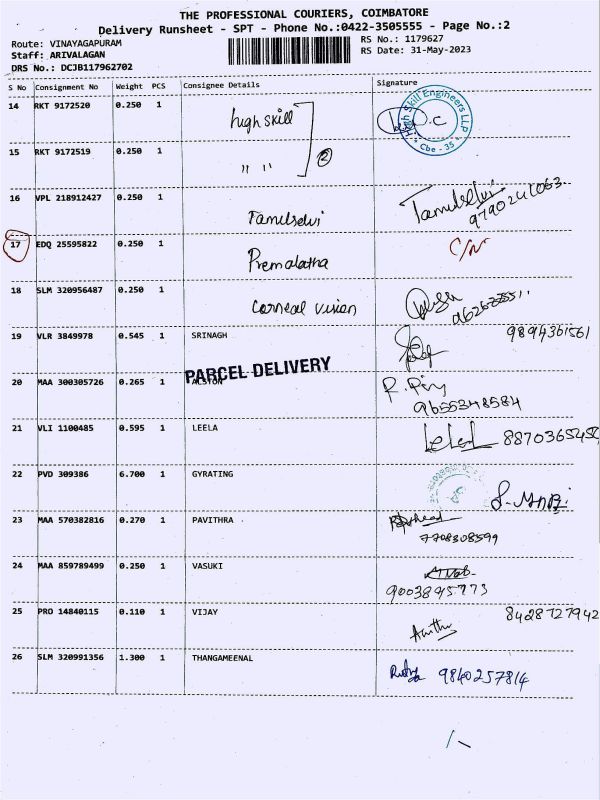 THE PROFESSIONAL COURIERS, COIMBATORE
Delivery Runsheet - SPT - Phone No.:0422-3505555 - Page No.:2
Route: VINAYAGAPURAM
RS No.: 1179627
Staff: ARIVALAGAN
RS Date: 31-May-2023
DRS No.: DCJB117962702
S No Consignment No Weight PCS Consignee Details Signature
14 RKT 9172520 0.250 1 high skill
High Skill Engineers LLP
* Cbe - 35 *
15 RKT 9172519 0.250 1 " "
2
16 VPL 218912427 0.250 1 Tamilselvi Tamilselvi
9790241063
17 EDQ 25595822 0.250 1 Premalatha C/N
18 SLM 320956487 0.250 1 Corneal vision
19 VLR 3849978 0.545 1 SRINAGH 9894361561
PARCEL DELIVERY
20 MAA 300305726 0.265 1 ALSTON
9655348584
21 VLI 1100485 0.595 1 LEELA 8870365458
22 PVD 309386 6.700 1 GYRATING
23 MAA 570382816 0.270 1 PAVITHRA
7708308599
24 MAA 859789499 0.250 1 VASUKI
9003895773
25 PRO 14840115 0.110 1 VIJAY 8428727942
26 SLM 320991356 1.300 1 THANGAMEENAL 9840257814